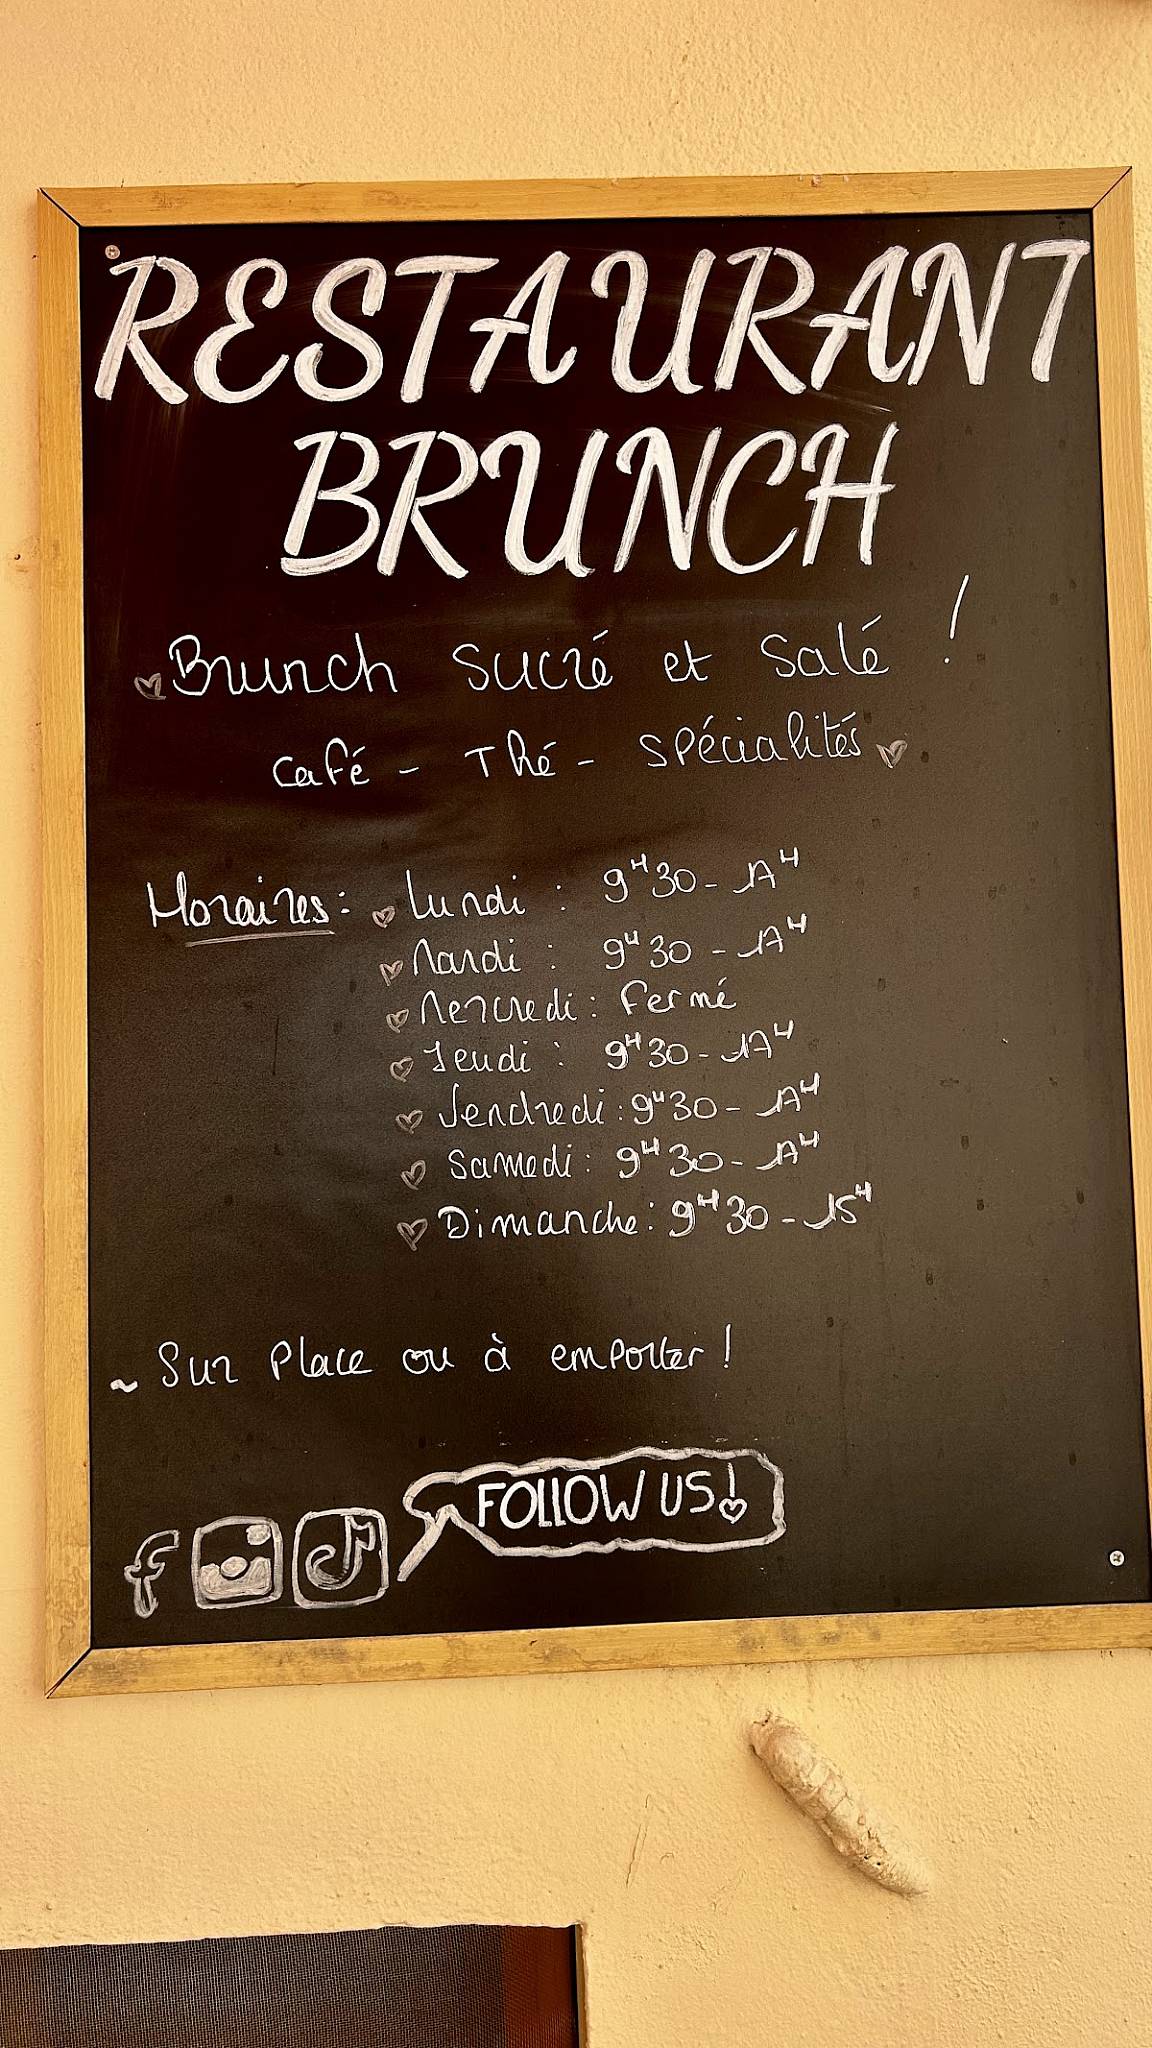 RESTAURANT
BRUNCH
Brunch sucré et salé !
Café - Thé - Spécialités
Horaires : Lundi : 9H30 - 17H
Mardi : 9H30 - 17H
Mercredi : Fermé
Jeudi : 9H30 - 17H
Vendredi : 9H30 - 17H
Samedi : 9H30 - 17H
Dimanche : 9H30 - 15H
~ Sur Place ou à emporter !
FOLLOW US!